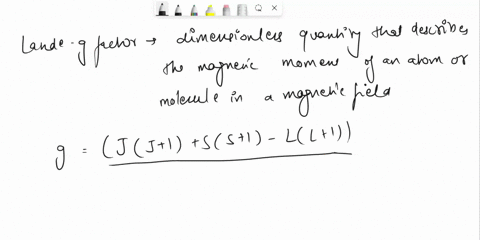 Lande-g factor → dimensionless quantity that describes
the magnetic moment of an atom or
molecule in a magnetic field
g = (J(J+1) + S(S+1) - L(L+1))